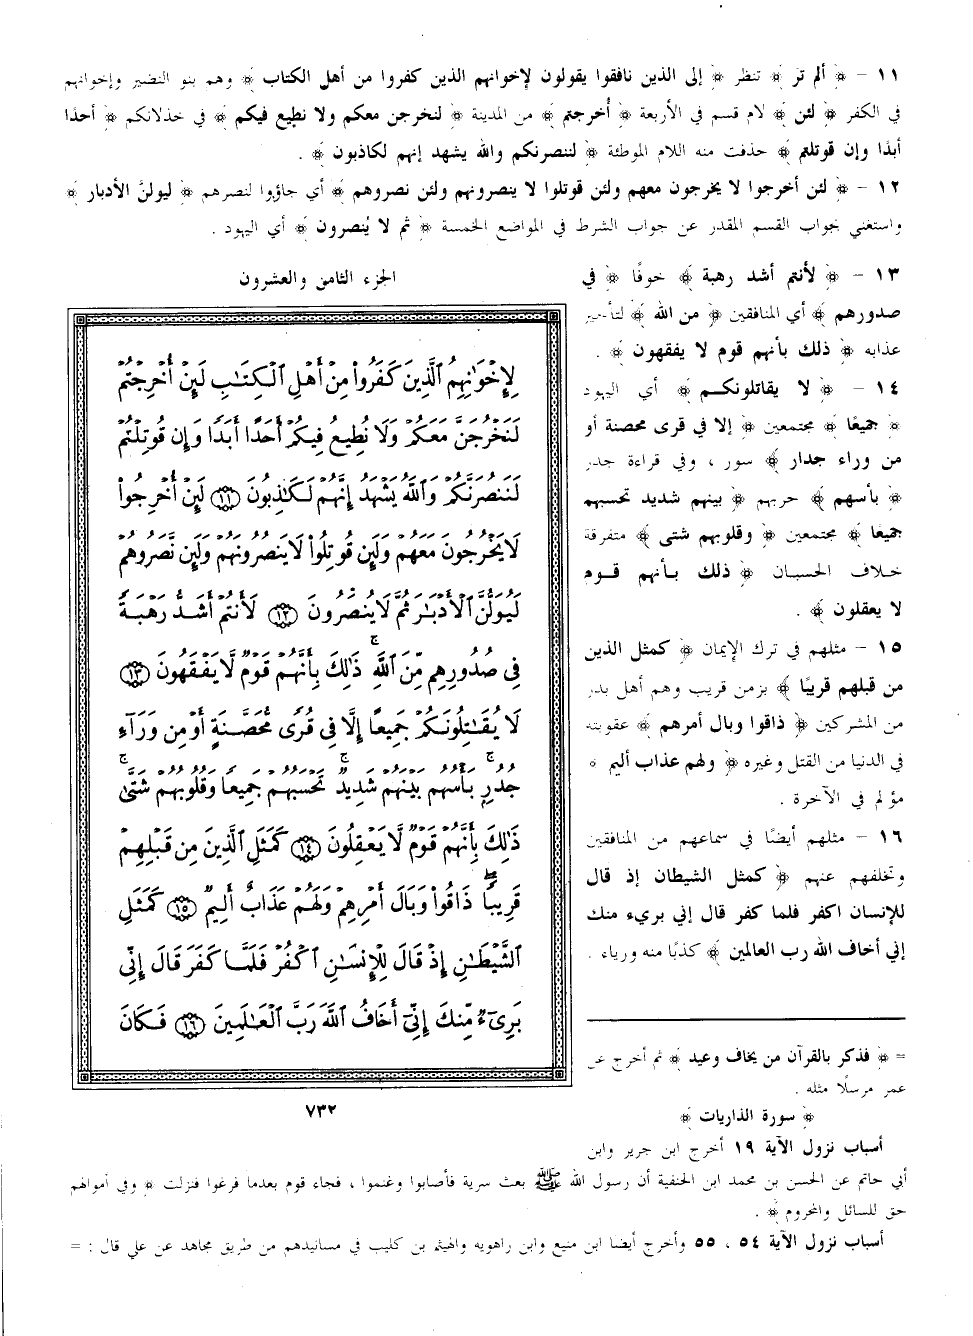 ١١ – ﴿ ألم تر ﴾ تنظر ﴿ إلى الذين نافقوا يقولون لإخوانهم الذين كفروا من أهل الكتاب ﴾ وهم بنو النضير وإخوانهم
في الكفر ﴿ لئن ﴾ لام قسم في الأربعة ﴿ أُخرجتم ﴾ من المدينة ﴿ لنخرجن معكم ولا نطيع فيكم ﴾ في خذلانكم ﴿ أحدًا
أبدًا وإن قوتلتم ﴾ حذفت منه اللام الموطئة ﴿ لننصرنكم والله يشهد إنهم لكاذبون ﴾ .
١٢ – ﴿ لئن أخرجوا لا يخرجون معهم ولئن قوتلوا لا ينصرونهم ولئن نصروهم ﴾ أي جاؤوا لنصرهم ﴿ ليولنَّ الأدبار ﴾
واستغني بجواب القسم المقدر عن جواب الشرط في المواضع الخمسة ﴿ ثم لا يُنصرون ﴾ أي اليهود .
١٣ – ﴿ لأنتم أشد رهبة ﴾ خوفًا ﴿ في
صدورهم ﴾ أي المنافقين ﴿ من الله ﴾ لتأخير
عذابه ﴿ ذلك بأنهم قوم لا يفقهون ﴾ .
١٤ – ﴿ لا يقاتلونكم ﴾ أي اليهود
﴿ جميعًا ﴾ مجتمعين ﴿ إلا في قرى محصنة أو
من وراء جدار ﴾ سور ، وفي قراءة جدر
﴿ بأسهم ﴾ حربهم ﴿ بينهم شديد تحسبهم
جميعًا ﴾ مجتمعين ﴿ وقلوبهم شتى ﴾ متفرقة
خلاف الحسبان ﴿ ذلك بأنهم قوم
لا يعقلون ﴾ .
١٥ – مثلهم في ترك الإيمان ﴿ كمثل الذين
من قبلهم قريبًا ﴾ بزمن قريب وهم أهل بدر
من المشركين ﴿ ذاقوا وبال أمرهم ﴾ عقوبته
في الدنيا من القتل وغيره ﴿ ولهم عذاب أليم ﴾
مؤلم في الآخرة .
١٦ – مثلهم أيضًا في سماعهم من المنافقين
وتخلفهم عنهم ﴿ كمثل الشيطان إذ قال
للإنسان اكفر فلما كفر قال إني بريء منك
إني أخاف الله رب العالمين ﴾ كذبًا منه ورياء .
الجزء الثامن والعشرون
لِإِخْوَٰنِهِمُ ٱلَّذِينَ كَفَرُوا۟ مِنْ أَهْلِ ٱلْكِتَٰبِ لَئِنْ أُخْرِجْتُمْ
لَنَخْرُجَنَّ مَعَكُمْ وَلَا نُطِيعُ فِيكُمْ أَحَدًا أَبَدًا وَإِن قُوتِلْتُمْ
لَنَنصُرَنَّكُمْ وَٱللَّهُ يَشْهَدُ إِنَّهُمْ لَكَٰذِبُونَ ﴿١١﴾ لَئِنْ أُخْرِجُوا۟
لَا يَخْرُجُونَ مَعَهُمْ وَلَئِن قُوتِلُوا۟ لَا يَنصُرُونَهُمْ وَلَئِن نَّصَرُوهُمْ
لَيُوَلُّنَّ ٱلْأَدْبَٰرَ ثُمَّ لَا يُنصَرُونَ ﴿١٢﴾ لَأَنتُمْ أَشَدُّ رَهْبَةً
فِى صُدُورِهِم مِّنَ ٱللَّهِ ۚ ذَٰلِكَ بِأَنَّهُمْ قَوْمٌ لَّا يَفْقَهُونَ ﴿١٣﴾
لَا يُقَٰتِلُونَكُمْ جَمِيعًا إِلَّا فِى قُرًى مُّحَصَّنَةٍ أَوْ مِن وَرَآءِ
جُدُرٍۭ ۚ بَأْسُهُم بَيْنَهُمْ شَدِيدٌ ۚ تَحْسَبُهُمْ جَمِيعًا وَقُلُوبُهُمْ شَتَّىٰ ۚ
ذَٰلِكَ بِأَنَّهُمْ قَوْمٌ لَّا يَعْقِلُونَ ﴿١٤﴾ كَمَثَلِ ٱلَّذِينَ مِن قَبْلِهِمْ
قَرِيبًا ۖ ذَاقُوا۟ وَبَالَ أَمْرِهِمْ وَلَهُمْ عَذَابٌ أَلِيمٌ ﴿١٥﴾ كَمَثَلِ
ٱلشَّيْطَٰنِ إِذْ قَالَ لِلْإِنسَٰنِ ٱكْفُرْ فَلَمَّا كَفَرَ قَالَ إِنِّى
بَرِىٓءٌ مِّنكَ إِنِّىٓ أَخَافُ ٱللَّهَ رَبَّ ٱلْعَٰلَمِينَ ﴿١٦﴾ فَكَانَ
٧٣٢
= ﴿ فذكر بالقرآن من يخاف وعيد ﴾ ثم أخرج عن
عمر مرسلًا مثله .
﴿ سورة الذاريات ﴾
أسباب نزول الآية ١٩ أخرج ابن جرير وابن
أبي حاتم عن الحسن بن محمد ابن الحنفية أن رسول الله ﷺ بعث سرية فأصابوا وغنموا ، فجاء قوم بعدما فرغوا فنزلت ﴿ وفي أموالهم
حق للسائل والمحروم ﴾ .
أسباب نزول الآية ٥٤ ، ٥٥ وأخرج أيضا ابن منيع وابن راهويه والهيثم بن كليب في مسانيدهم من طريق مجاهد عن علي قال : =